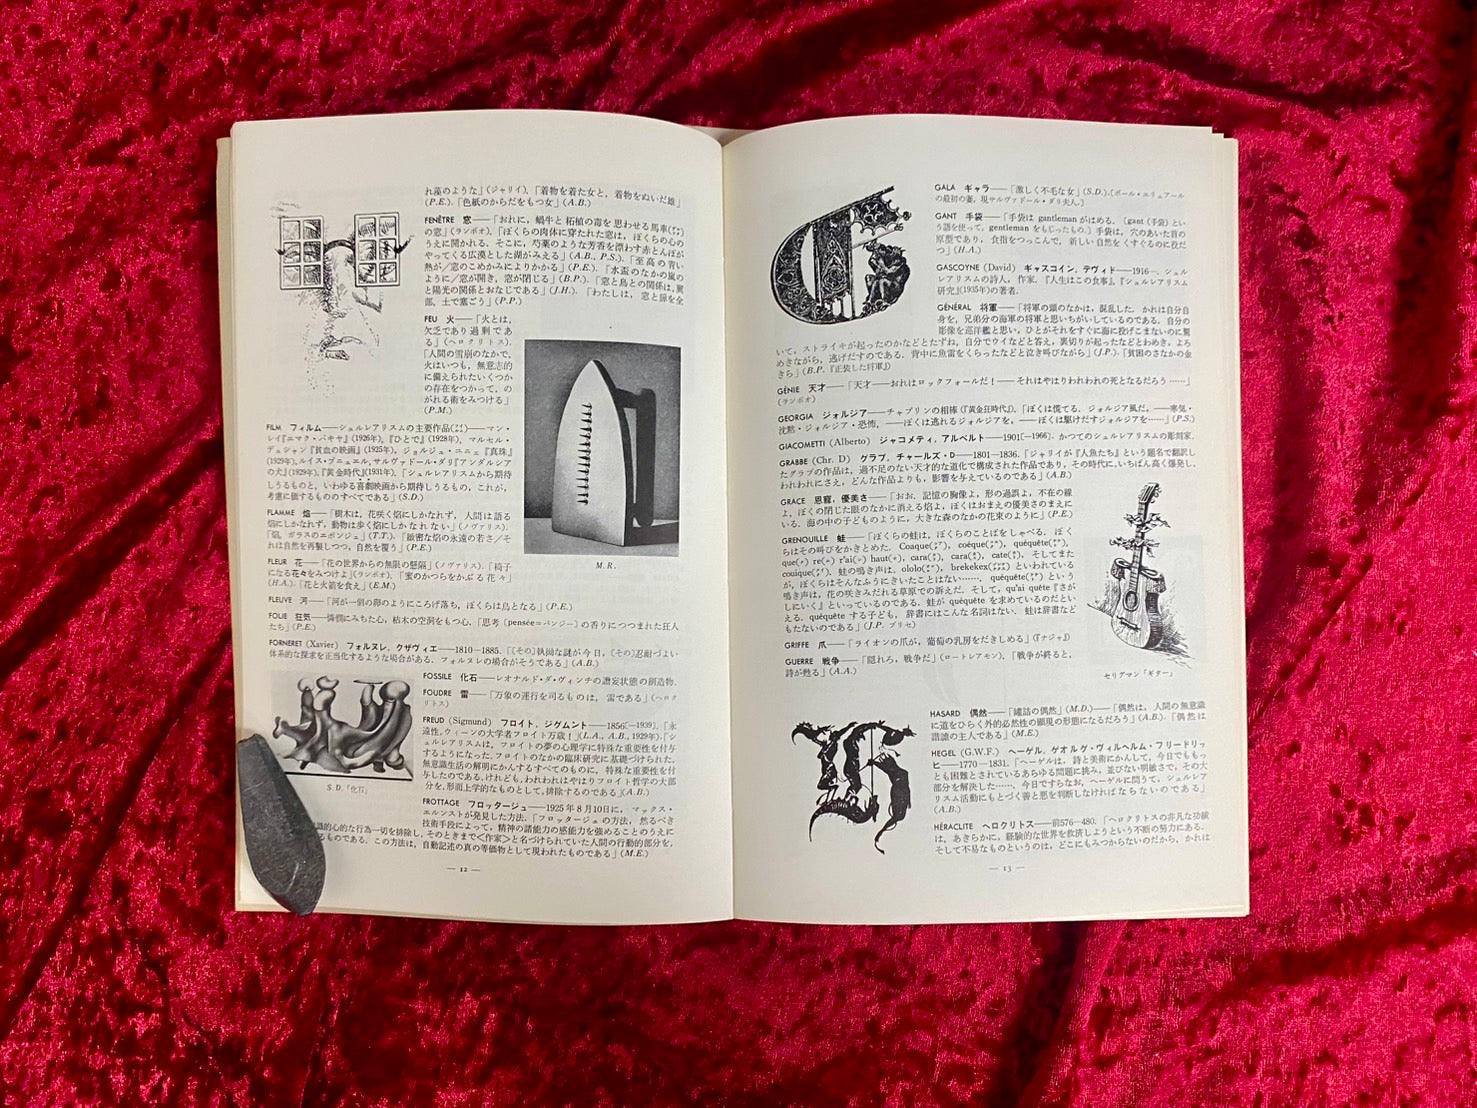 れ藻のような」(ジャリイ)、「着物を着た女と，着物をぬいだ雄」
(P.E.)、「色紙のからだをもつ女」(A.B.)
FENÊTRE 窓――「おれに，蝸牛と柘植の毒を思わせる馬車
の窓」(ランボオ)、「ぼくらの肉体に穿たれた窓は，ぼくらの心の
うえに開かれる．そこに，芍薬のような芳香を漂わす赤とんぼが
やってくる広漠とした湖がみえる」(A.B., P.S.)、「至高の青い
熱が／窓のこめかみによりかかる」(P.E.)、「水盃のなかの嵐の
ように／窓が開き，窓が閉じる」(B.P.)、「窓と鳥との関係は，翼
と陽光の関係とおなじである」(J.H.)、「わたしは，窓と扉を全
部，土で塞ごう」(P.P.)
FEU 火――「火とは，
欠乏であり過剰であ
る」(ヘロクリトス)．
「人間の雪崩のなかで，
火はいつも，無意志的
に備えられたいくつか
の存在をつかって，の
がれる術をみつける」
(P.M.)
M.R.
FILM フィルム――シュルレアリスムの主要作品――マン・
レイ『エマク・バキヤ』(1926年)，『ひとで』(1928年)，マルセル・
デュシャン『貧血の映画』(1925年)，ジョルジュ・ユニェ『真珠』
(1929年)，ルイス・ブニュエル，サルヴァドール・ダリ『アンダルシア
の犬』(1929年)，『黄金時代』(1931年)．「シュルレアリスムから期待
しうるものと，いわゆる喜劇映画から期待しうるもの，これが，
考慮に価するもののすべてである」(S.D.)
FLAMME 焔――「樹木は，花咲く焔にしかなれず，人間は語る
焔にしかなれず，動物は歩く焔にしかなれない」(ノヴァリス)．
「焔，ガラスのエポンジュ」(T.T.)．「緻密な焔の永遠の若さ／そ
れは自然を再製しつつ，自然を覆う」(P.E.)
FLEUR 花――「花の世界からの無限の懸隔」(ノヴァリス)．「椅子
になる花々をみつけよ」(ランボオ)．「蜜のかつらをかぶる花々」
(H.A.)「花と火箭を食え」(E.M.)
FLEUVE 河――「河が一個の卵のようにころげ落ち，ぼくらは鳥となる」(P.E.)
FOLIE 狂気――憐憫にみちた心，枯木の空洞をもつ心．「思考〔pensée＝パンジー〕の香りにつつまれた狂人
たち」(P.E.)
FORNERET (Xavier) フォルヌレ，クザヴィエ――1810―1885.「〔その〕執拗な謎が今日，〔その〕忍耐づよい
体系的な探求を正当化するような場合がある．フォルヌレの場合がそうである」(A.B.)
S.D.「化石」
FOSSILE 化石――レオナルド・ダ・ヴィンチの譫妄状態の創造物．
FOUDRE 雷――「万象の運行を司るものは，雷である」(ヘロク
リトス)
FREUD (Sigmund) フロイト，ジグムント――1856〔―1939〕．「永
遠性，ウィーンの大学者フロイト万歳！」(L.A., A.B., 1929年)．「シ
ュルレアリスムは，フロイトの夢の心理学に特殊な重要性を付与
するようになった．フロイトのなかの臨床研究に基礎づけられた，
無意識生活の解明にかんするすべてのものに，特殊な重要性を付
与したのである．けれども，われわれはやはりフロイト哲学の大部
分を，形而上学的なものとして，排除するのである」(A.B.)
FROTTAGE フロッタージュ――1925年8月10日に，マックス・
エルンストが発見した方法．「フロッタージュの方法，然るべき
技術手段によって，精神の諸能力の感能力を強めることのうえに
識的心的な行為一切を排除し，そのときまで＜作家＞と名づけられていた人間の行動的部分を，
るものである．この方法は，自動記述の真の等価物として現われたものである」(M.E.)
― 12 ―
GALA ギャラ――「激しく不毛な女」(S.D.)．〔ポール・エリュアール
の最初の妻，現サルヴァドール・ダリ夫人〕
GANT 手袋――「手袋は gantleman がはめる．〔gant (手袋) とい
う語を使って，gentleman をもじったもの〕手袋は，穴のあいた首の
原型であり，食指をつっこんで，新しい自然をくすぐるのに役だ
つ」(H.A.)
GASCOYNE (David) ギャスコイン，デヴィド――1916―．シュル
レアリスムの詩人，作家．『人生はこの食事』，『シュルレアリスム
研究』(1935年)の著者．
GÉNÉRAL 将軍――「将軍の頭のなかは，混乱した．かれは自分自
身を，兄弟分の海軍の将軍と思いちがいしているのである．自分の
彫像を巡洋艦と思い，ひとがそれをすぐに海に投げこまないのに驚
いて，ストライキが起ったのかなどとたずね，自分でウイなどと答え，裏切りが起ったなどとわめき，よろ
めきながら，逃げだすのである．背中に魚雷をくらったなどと泣き叫びながら」(J.P.)「貧困のさなかの金
きら」(B.P.『正装した将軍』)
GÉNIE 天才――「天才――おれはロックフォールだ！――それはやはりわれわれの死となるだろう……」
(ランボオ)
GEORGIA ジョルジア――チャプリンの相棒(『黄金狂時代』)．「ぼくは慌てる，ジョルジア風だ．――寒気・
沈黙・ジョルジア・恐怖，――ぼくは逃れるジョルジアを，――ぼくは駆けだすジョルジアを……」(P.S.)
GIACOMETTI (Alberto) ジャコメティ，アルベルト――1901〔―1966〕．かつてのシュルレアリスムの彫刻家．
GRABBE (Chr. D) グラブ，チャールズ・D――1801―1836.「ジャリイが『人魚たち』という題名で翻訳し
たグラブの作品は，過不足のない天才的な道化で構成された作品であり，その時代に，いちばん高く爆発し，
われわれにさえ，どんな作品よりも，影響を与えているのである」(A.B.)
GRACE 恩寵，優美さ――「おお，記憶の胸像よ，形の過誤よ，不在の線
よ，ぼくの閉じた眼のなかに消える焔よ，ぼくはおまえの優美さのまえに
いる．海の中の子どものように，大きな森のなかの花束のように」(P.E.)
GRENOUILLE 蛙――「ぼくらの蛙は，ぼくらのことばをしゃべる．ぼく
らはその叫びをかきとめた．Coaque, coéque, quéquête, et
que re rai haut, cara, cara, cate, そしてまた
couique．蛙の鳴き声は，ololo, brekekex といわれている
が，ぼくらはそんなふうにきいたことはない……，quéquête という
鳴き声は，花の咲きみだれる草原での訴えだ．そして，qu'ai quête『さが
しにいく』といっているのである．蛙が quéquête を求めているのだとい
える．quéquête する子ども，辞書にはこんな名詞はない．蛙は辞書など
もたないのである」(J.P. ブリセ)
GRIFFE 爪――「ライオンの爪が，葡萄の乳房をだきしめる」(『ナジャ』)
GUERRE 戦争――「隠れろ，戦争だ」(ロートレアモン)．「戦争が終ると，
詩が甦る」(A.A.)
セリグマン「ギター」
HASARD 偶然――「罐詰の偶然」(M.D.)――「偶然は，人間の無意識
に道をひらく外的必然性の顕現の形態になるだろう」(A.B.)．「偶然は
諧謔の主人である」(M.E.)
HEGEL (G.W.F.) ヘーゲル，ゲオルグ・ヴィルヘルム・フリードリッ
ヒ――1770―1831.「ヘーゲルは，詩と美術にかんして，今日でももっ
とも困難とされているあらゆる問題に挑み，並びない明敏さで，その大
部分を解決した……，今日ですらなお，ヘーゲルに問うて，シュルレア
リスム活動にもとづく善と悪を判断しなければならないのである」
(A.B.)
HÉRACLITE ヘロクリトス――前576―480.「ヘロクリトスの非凡な功績
は，あきらかに，経験的な世界を救済しようという不断の努力にある．
そして不易なものというのは，どこにもみつからないのだから，かれは
― 13 ―